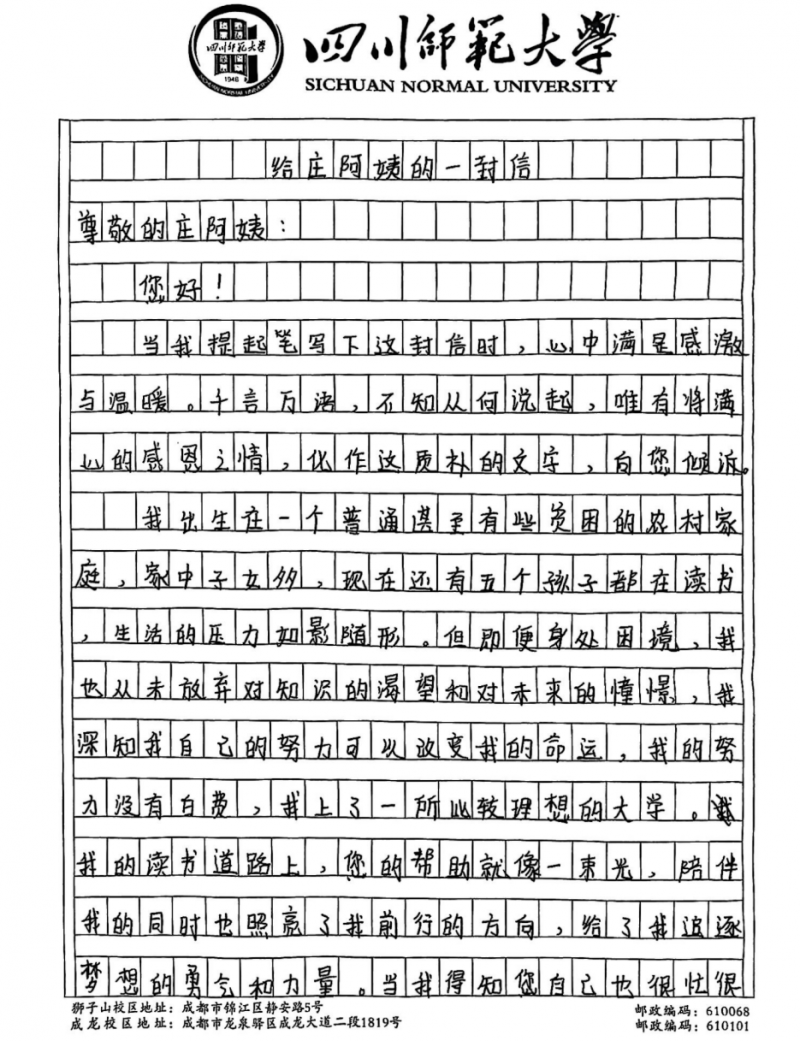 四川师范大学
1946
SICHUAN NORMAL UNIVERSITY
四川師範大學
SICHUAN NORMAL UNIVERSITY
给庄阿姨的一封信
尊敬的庄阿姨：
您好！
当我提起笔写下这封信时，心中满是感激
与温暖。千言万语，不知从何说起，唯有将满
心的感恩之情，化作这质朴的文字，向您倾诉。
我出生在一个普通甚至有些贫困的农村家
庭，家中子女多，现在还有五个孩子都在读书
，生活的压力如影随形。但即便身处困境，我
也从未放弃对知识的渴望和对未来的憧憬，我
深知我自己的努力可以改变我的命运，我的努
力没有白费，我上了一所比较理想的大学。
我的读书道路上，您的帮助就像一束光，陪伴
我的同时也照亮了我前行的方向，给了我追逐
梦想的勇气和力量。当我得知您自己也很忙很
狮子山校区地址：成都市锦江区静安路5号
邮政编码：610068
成龙校区地址：成都市龙泉驿区成龙大道二段1819号
邮政编码：610101